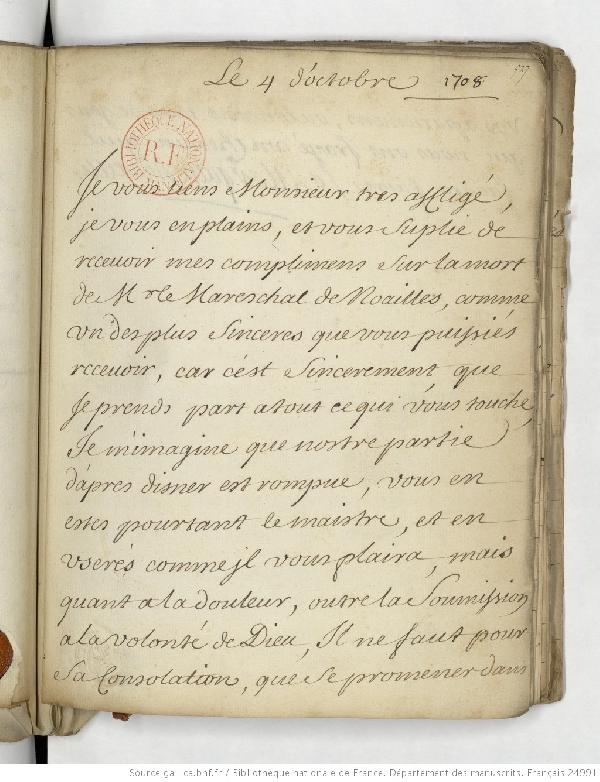 Le 4 d'octobre 1708
BIBLIOTHEQUE NATIONALE
R.F.
Je vous tiens Monsieur tres affligé,
je vous en plains, et vous suplie de
recevoir mes complimens sur la mort
de Mr le Mareschal de Noailles, comme
vn des plus sinceres que vous puissiés
recevoir, car c'est sincerement que
Je prends part a tout ce qui vous touche,
Je m'imagine que nostre partie
d'apres disner est rompue, vous en
estes pourtant le maistre, et en
vserés comme jl vous plaira, mais
quant a la douleur, outre la soumission
a la volonté de Dieu, Il ne faut pour
sa Consolation, que se promener dans
Source gallica.bnf.fr / Bibliothèque nationale de France. Département des manuscrits. Français 24991